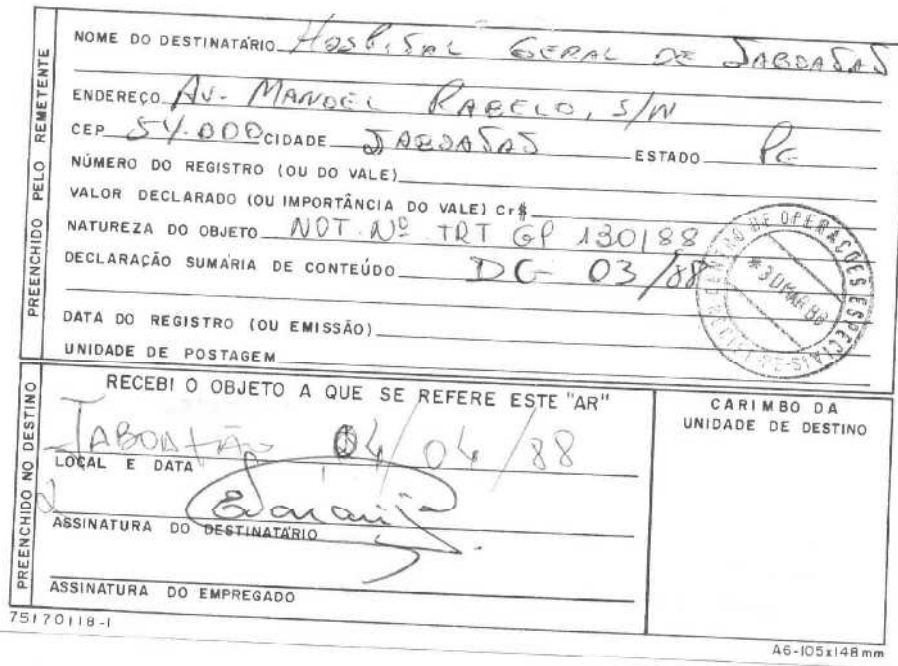 PREENCHIDO PELO REMETENTE
NOME DO DESTINATÁRIO Hospital GERAL DE JABOATAO
ENDEREÇO AV. MANOEL RABELO, S/N
CEP 54.000 CIDADE JABOATAO ESTADO PE
NÚMERO DO REGISTRO (OU DO VALE)
VALOR DECLARADO (OU IMPORTÂNCIA DO VALE) Cr$
NATUREZA DO OBJETO NOT. Nº TRT GP 130/88
DECLARAÇÃO SUMÁRIA DE CONTEÚDO DG 03/88
DATA DO REGISTRO (OU EMISSÃO)
UNIDADE DE POSTAGEM
DE OPERAÇÕES ESPECIAIS
*30 MAR 88
PREENCHIDO NO DESTINO
RECEBI O OBJETO A QUE SE REFERE ESTE "AR"
JABOATÃO 04/04/88
LOCAL E DATA
ASSINATURA DO DESTINATÁRIO
ASSINATURA DO EMPREGADO
CARIMBO DA
UNIDADE DE DESTINO
75170118-1
A6-105x148mm